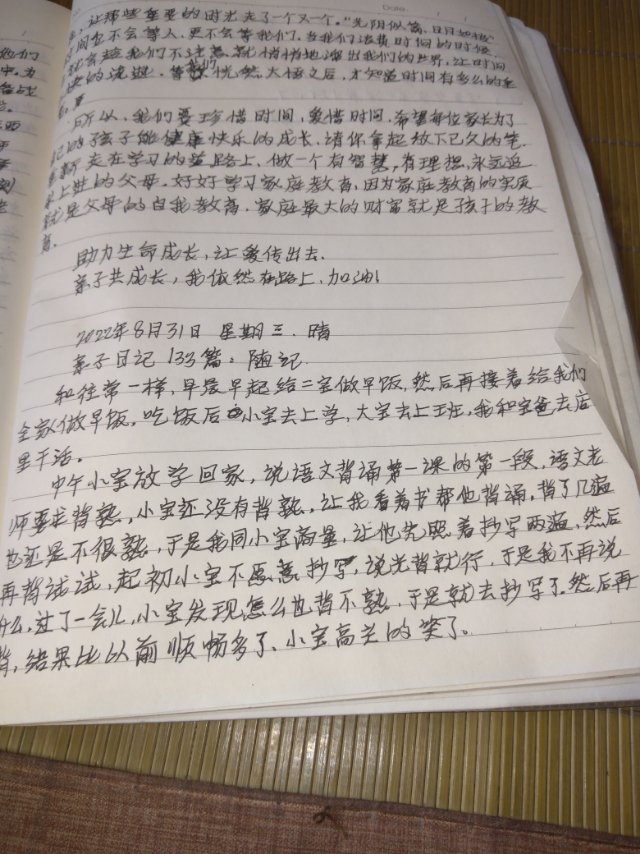 Date
让那些宝贵的时光走了一个又一个。"光阴似箭,日月如梭"
时间也不会等人,更不会等我们,当我们浪费时间的时候,
就会趁我们不注意就悄悄地溜出我们的世界,让时间
快的流逝。等我们恍然大悟之后,才知道时间有多么的重
要。
所以,我们要珍惜时间,爱惜时间,希望每位家长为了
自己的孩子能健康快乐的成长,请你拿起放下已久的笔,
走在学习的道路上,做一个有智慧,有理想,永远追
求上进的父母。好好学习家庭教育,因为家庭教育的实质
就是父母的自我教育,家庭最大的财富就是孩子的教
育。
助力生命成长,让爱传出去.
亲子共成长,我依然在路上,加油!
2022年8月31日 星期三 晴
亲子日记 133篇:随记.
和往常一样,早晨早起给二宝做早饭,然后再接着给我们
全家做早饭,吃饭后小宝去上学,大宝去上班,我和宝爸去店
里干活。
中午小宝放学回家,说语文背诵第一课的第一段,语文老
师要求背熟,小宝还没有背熟,让我看着书帮他背诵,背了几遍
也还是不很熟,于是我同小宝商量,让他先照着抄写两遍,然后
再背试试,起初小宝不愿意抄写,说光背就行,于是我不再说
什么,过了一会儿,小宝发现怎么也背不熟,于是就去抄写了,然后再
背,结果比以前顺畅多了,小宝高兴的笑了。